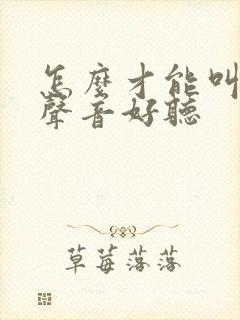 怎麼才能叫
聲音好聽
草莓落落